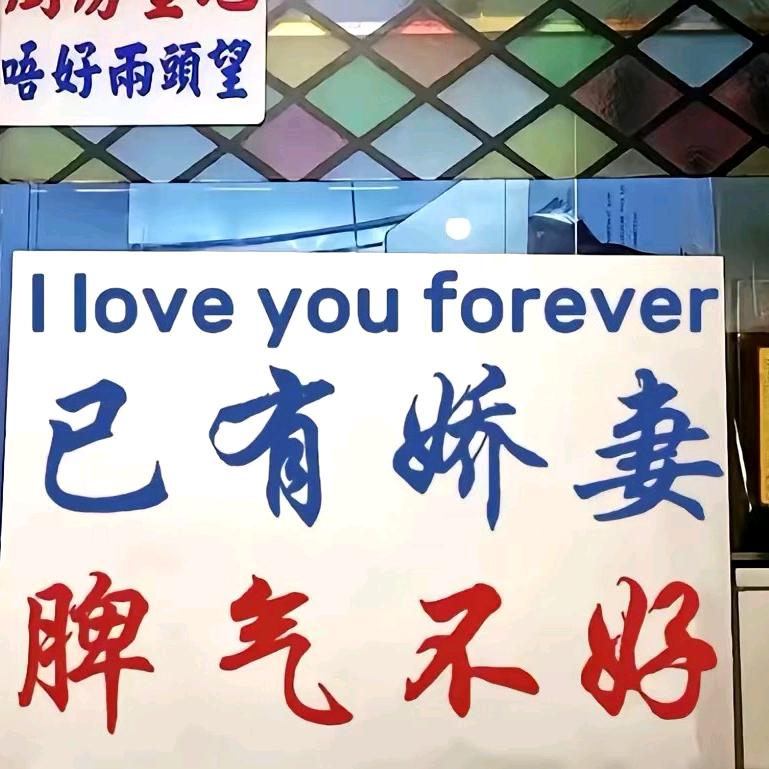 唔好兩頭望
I love you forever
已有娇妻
脾气不好